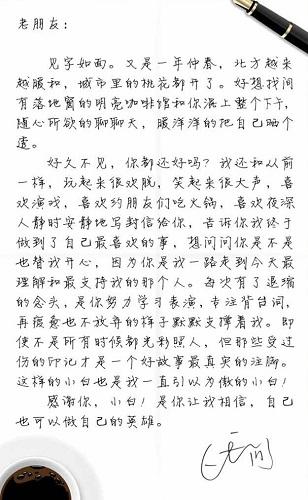 老朋友：
见字如面。又是一年仲春，北方越来
越暖和，城市里的桃花都开了。好想找间
有落地窗的明亮咖啡馆和你泥上整个下午，
随心所欲的聊聊天，暖洋洋的把自己晒个
透。
好久不见，你都还好吗？我还和从前
一样，玩起来很欢脱，笑起来很大声，喜
欢演戏，喜欢约朋友们吃火锅，喜欢夜深
人静时安静地写封信给你，告诉你我终于
做到了自己最喜欢的事，想问问你是不是
也替我开心，因为你是我一路走到今天最
理解和最支持我的那个人。每次有了退缩
的念头，是你努力学习表演，专注背台词，
再疲惫也不放弃的样子默默支撑着我。即
使不是所有时候都光彩照人，但那些受过
伤的印记才是一个好故事最真实的注脚。
这样的小白也是我一直引以为傲的小白！
感谢你，小白！是你让我相信，自己
也可以做自己的英雄。